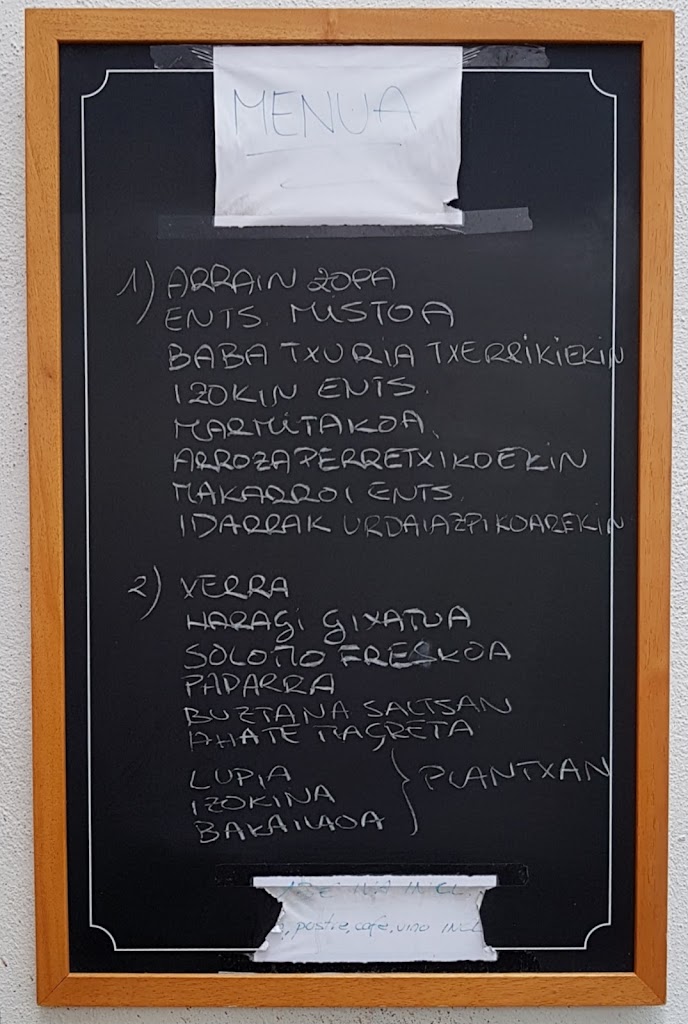 MENUA
1) ARRAIN ZOPA
ENTS. MISTOA
BABA TXURIA TXERRIKIEKIN
IZOKIN ENTS.
MARMITAKOA.
ARROZA PERRETXIKOEKIN
MAKARROI ENTS.
IDARRAK URDAIAZPIKOAREKIN
2) XERRA
HARAGI GIXATUA
SOLOMO FRESKOA
PADARRA
BUZTANA SALTSAN
AHATE MAGRETA
LUPIA
IZOKINA } PLANTXAN
BAKAILAOA
IVA INCL.
, postre, cafe, vino INCL